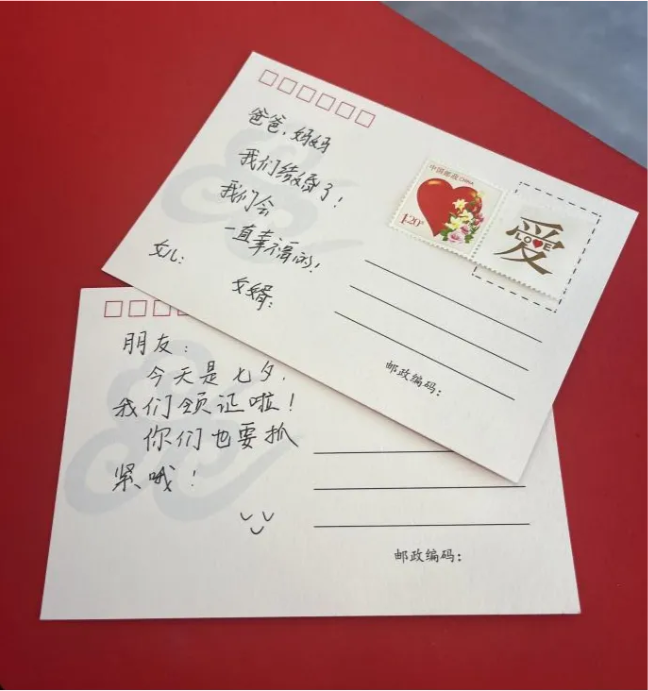 爸爸，妈妈
我们结婚了！
我们会
一直幸福的！
女儿：
女婿：
中国邮政 CHINA
1.20元
爱
LOVE
邮政编码：
朋友：
今天是七夕，
我们领证啦！
你们也要抓
紧哦！
邮政编码：